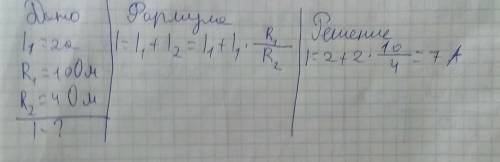 Дано
I₁ = 2а
R₁ = 10 Ом
R₂ = 4 Ом
I - ?
Формула
I = I₁ + I₂ = I₁ + I₁ · R₁/R₂
Решение
I = 2 + 2 · 10/4 = 7 А